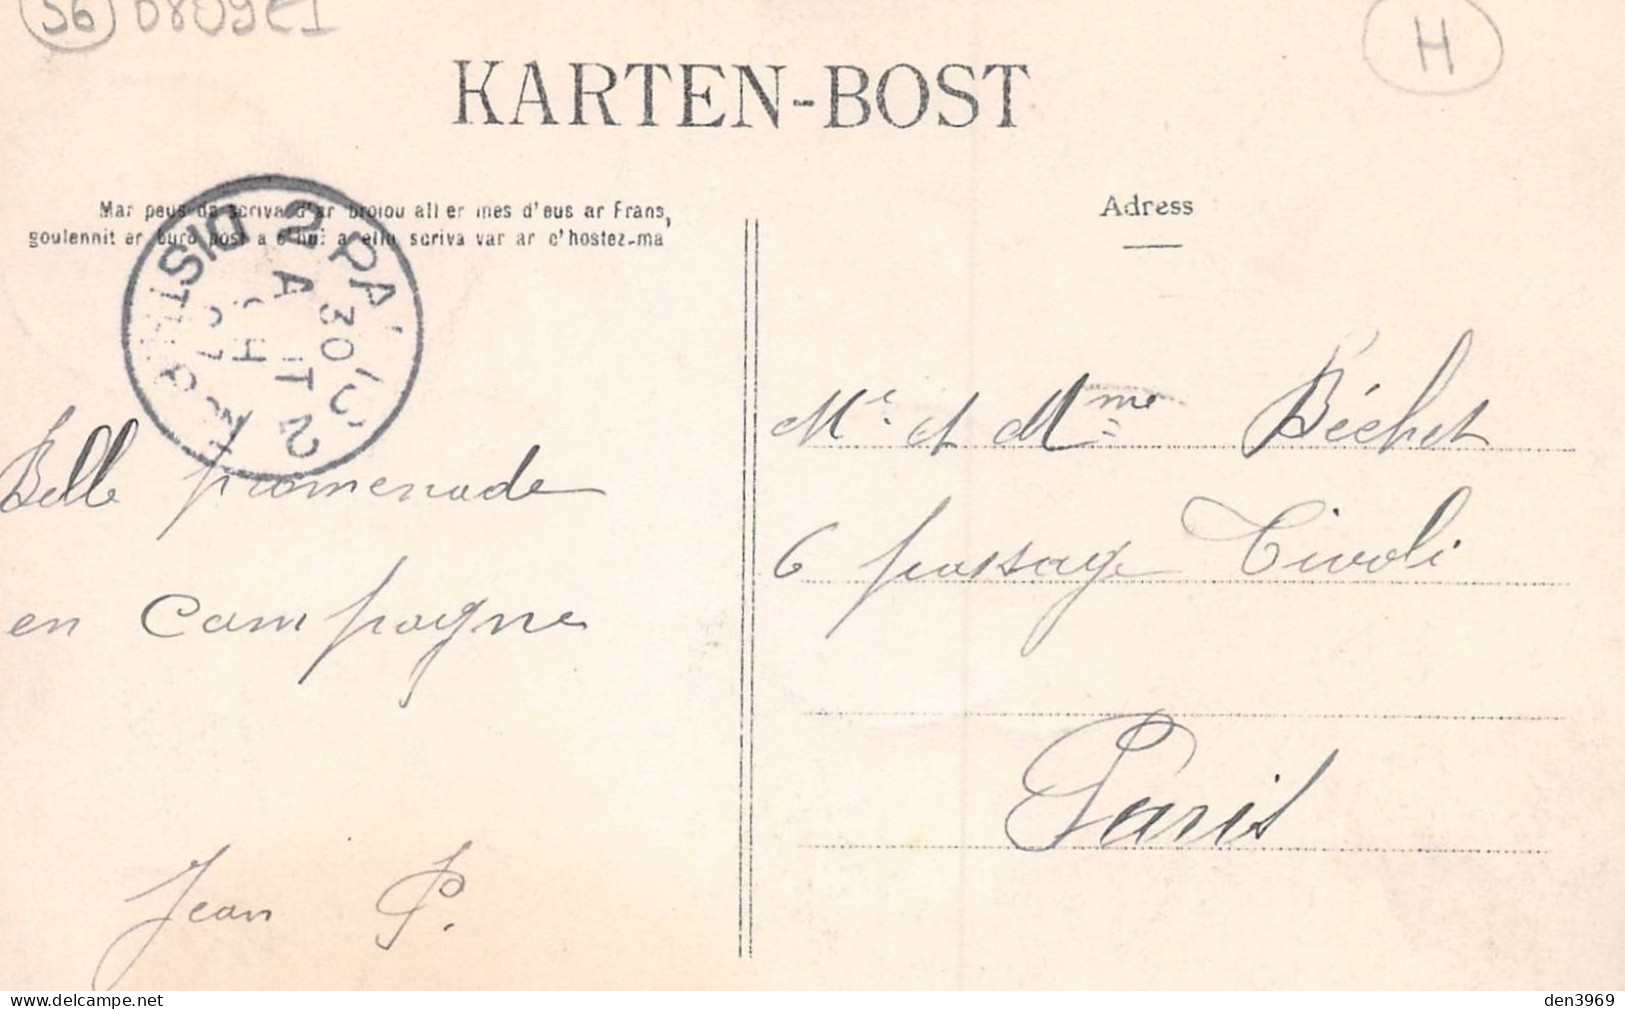 56
KARTEN-BOST
H
Mar peus da scriva d'ar broiou all er mes d'eus ar Frans,
goulennit er buro post a scriva var ar c'hostez-ma
Adress
DISTRIB
PA
2
30
Belle promenade
en Campagne
Jean P.
Mr. et Mme Béchet
6 passage Tivoli
Paris
www.delcampe.net
den3969